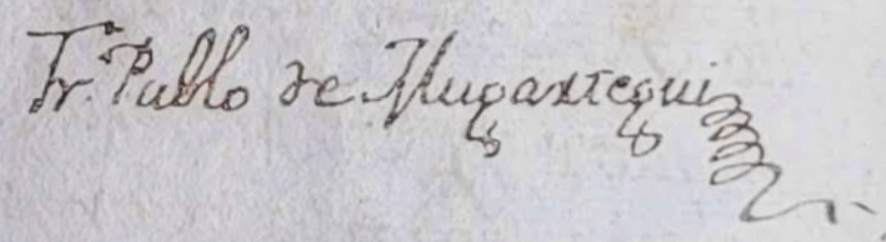 Fr. Pablo de Mugartegui